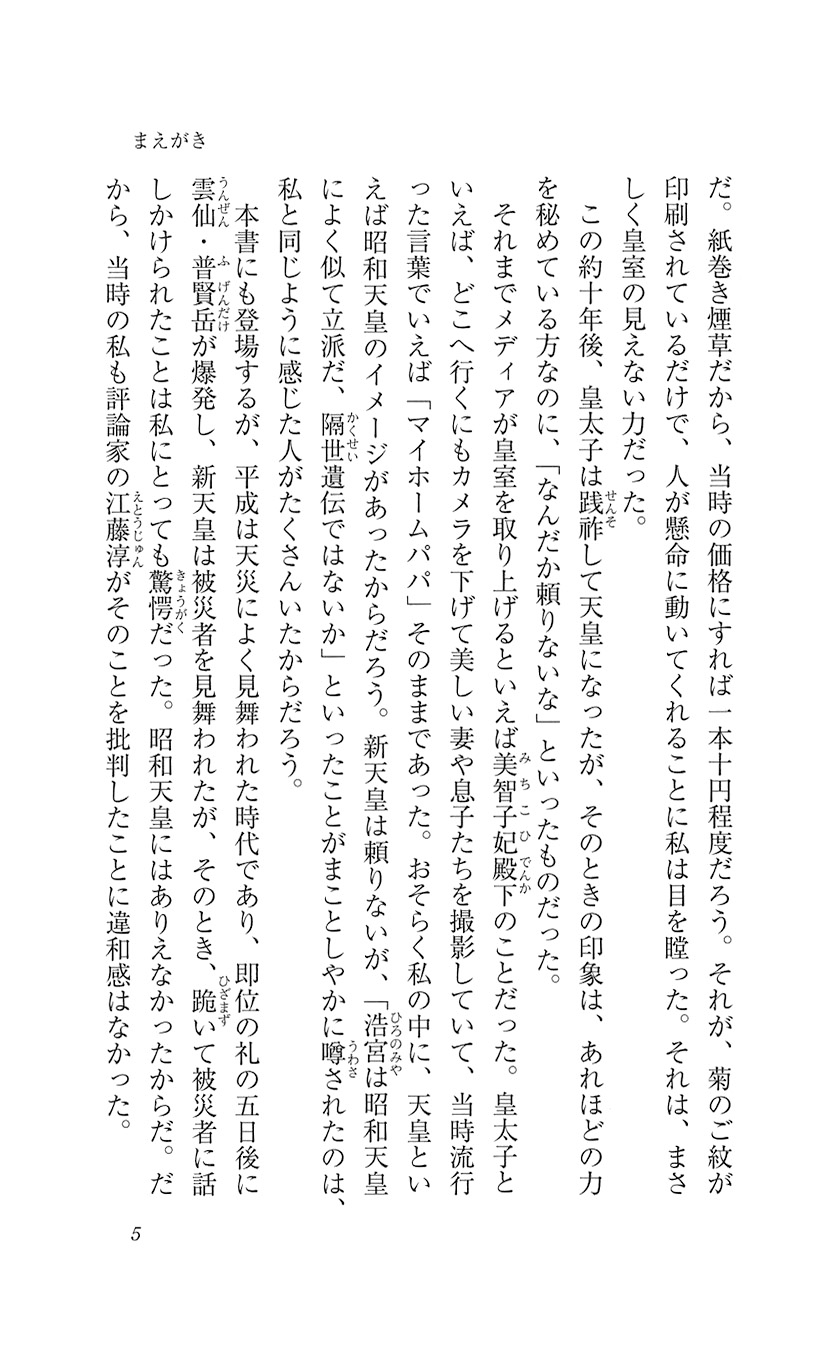 まえがき
だ。紙巻き煙草だから、当時の価格にすれば一本十円程度だろう。それが、菊のご紋が
印刷されているだけで、人が懸命に動いてくれることに私は目を瞠った。それは、まさ
しく皇室の見えない力だった。
この約十年後、皇太子は践祚して天皇になったが、そのときの印象は、あれほどの力
を秘めている方なのに、「なんだか頼りないな」といったものだった。
それまでメディアが皇室を取り上げるといえば美智子妃殿下のことだった。皇太子と
いえば、どこへ行くにもカメラを下げて美しい妻や息子たちを撮影していて、当時流行
った言葉でいえば「マイホームパパ」そのままであった。おそらく私の中に、天皇とい
えば昭和天皇のイメージがあったからだろう。新天皇は頼りないが、「浩宮は昭和天皇
によく似て立派だ、隔世遺伝ではないか」といったことがまことしやかに噂されたのは、
私と同じように感じた人がたくさんいたからだろう。
本書にも登場するが、平成は天災によく見舞われた時代であり、即位の礼の五日後に
雲仙・普賢岳が爆発し、新天皇は被災者を見舞われたが、そのとき、跪いて被災者に話
しかけられたことは私にとっても驚愕だった。昭和天皇にはありえなかったからだ。だ
から、当時の私も評論家の江藤淳がそのことを批判したことに違和感はなかった。
5